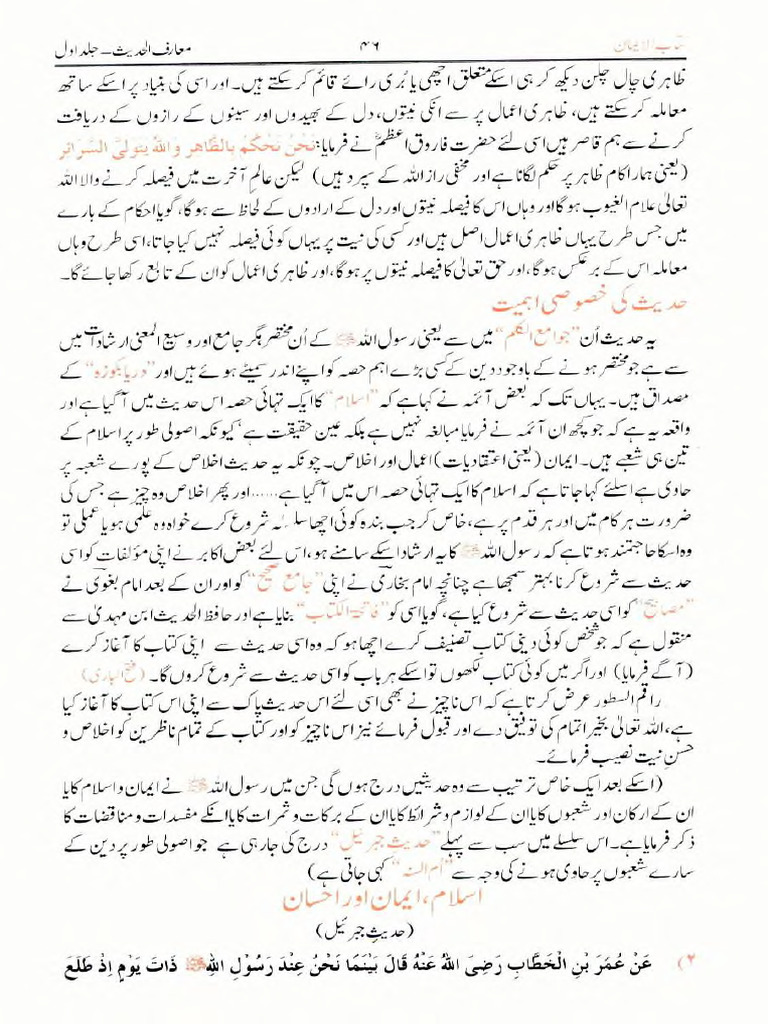 کتاب الایمان ۴۶ معارف الحدیث – جلد اول
ظاہری چال چلن دیکھ کر ہی اسکے متعلق اچھی یا بُری رائے قائم کر سکتے ہیں۔ اور اسی کی بنیاد پر اسکے ساتھ
معاملہ کر سکتے ہیں، ظاہری اعمال پر سے انکی نیتوں، دل کے بھیدوں اور سینوں کے رازوں کے دریافت
کرنے سے ہم قاصر ہیں اسی لئے حضرت فاروق اعظمؓ نے فرمایا: نَحْنُ نَحْكُمُ بِالظَّاهِر وَاللهُ يَتَوَلَّى السَّرَائِر
(یعنی ہمارا کام ظاہر پر حکم لگانا ہے اور مخفی راز اللہ کے سپرد ہیں) لیکن عالمِ آخرت میں فیصلہ کرنے والا اللہ
تعالیٰ علام الغیوب ہوگا اور وہاں اس کا فیصلہ نیتوں اور دل کے ارادوں کے لحاظ سے ہوگا، گویا احکام کے بارے
میں جس طرح یہاں ظاہری اعمال اصل ہیں اور کسی کی نیت پر یہاں کوئی فیصلہ نہیں کیا جاتا، اسی طرح وہاں
معاملہ اس کے برعکس ہوگا، اور حق تعالیٰ کا فیصلہ نیتوں پر ہوگا، اور ظاہری اعمال کو ان کے تابع رکھا جائے گا۔
حدیث کی خصوصی اہمیت
یہ حدیث اُن "جوامع الکلم" میں سے یعنی رسول اللہ ﷺ کے اُن مختصر مگر جامع اور وسیع المعنیٰ ارشادات میں
سے ہے جو مختصر ہونے کے باوجود دین کے کسی بڑے اہم حصہ کو اپنے اندر سمیٹے ہوئے ہیں اور "دریا بکوزہ" کے
مصداق ہیں۔ یہاں تک کہ بعض آئمہ نے کہا ہے کہ "اسلام" کا ایک تہائی حصہ اس حدیث میں آگیا ہے اور
واقعہ یہ ہے کہ جو کچھ ان آئمہ نے فرمایا مبالغہ نہیں ہے بلکہ عین حقیقت ہے، کیونکہ اصولی طور پر اسلام کے
تین ہی شعبے ہیں۔ ایمان (یعنی اعتقادیات) اعمال اور اخلاص۔ چونکہ یہ حدیث اخلاص کے پورے شعبہ پر
حاوی ہے اسلئے کہا جاتا ہے کہ اسلام کا ایک تہائی حصہ اس میں آگیا ہے......اور پھر اخلاص وہ چیز ہے جس کی
ضرورت ہر کام میں اور ہر قدم پر ہے، خاص کر جب بندہ کوئی اچھا سلسلہ شروع کرے خواہ وہ علمی ہو یا عملی تو
وہ اسکا حاجتمند ہوتا ہے کہ رسول اللہ ﷺ کا یہ ارشاد اسکے سامنے ہو، اس لئے بعض اکابر نے اپنی مؤلفات کو اسی
حدیث سے شروع کرنا بہتر سمجھا ہے چنانچہ امام بخاریؒ نے اپنی "جامع صحیح" کو اور ان کے بعد امام بغویؒ نے
"مصابیح" کو اسی حدیث سے شروع کیا ہے، گویا اسی کو "فاتحۃ الکتاب" بنایا ہے اور حافظ الحدیث ابن مہدیؒ سے
منقول ہے کہ جو شخص کوئی دینی کتاب تصنیف کرے اچھا ہو کہ وہ اسی حدیث سے اپنی کتاب کا آغاز کرے
(آگے فرمایا) اور اگر میں کوئی کتاب لکھوں تو اسکے ہر باب کو اسی حدیث سے شروع کروں گا۔ (فتح الباری)
راقم السطور عرض کرتا ہے کہ اس ناچیز نے بھی اسی لئے اس حدیث پاک سے اپنی اس کتاب کا آغاز کیا
ہے، اللہ تعالیٰ بخیر اتمام کی توفیق دے اور قبول فرمائے نیز اس ناچیز کو اور کتاب کے تمام ناظرین کو اخلاص و
حسنِ نیت نصیب فرمائے۔
(اسکے بعد ایک خاص ترتیب سے وہ حدیثیں درج ہوں گی جن میں رسول اللہ ﷺ نے ایمان و اسلام کا یا
ان کے ارکان اور شعبوں کا یا ان کے لوازم و شرائط کا یا ان کے برکات و ثمرات کا یا انکے مفسدات و مناقضات کا
ذکر فرمایا ہے۔ اس سلسلے میں سب سے پہلے "حدیث جبرئیل" درج کی جارہی ہے جو اصولی طور پر دین کے
سارے شعبوں پر حاوی ہونے کی وجہ سے "اُم السنہ" کہی جاتی ہے)
اسلام، ایمان اور احسان
(حدیثِ جبرئیل)
۲) عَنْ عُمَرَ بْنِ الْخَطَّابِ رَضِيَ اللهُ عَنْهُ قَالَ بَيْنَمَا نَحْنُ عِنْدَ رَسُوْلِ اللهِ ﷺ ذَاتَ يَوْمٍ اِذْ طَلَعَ